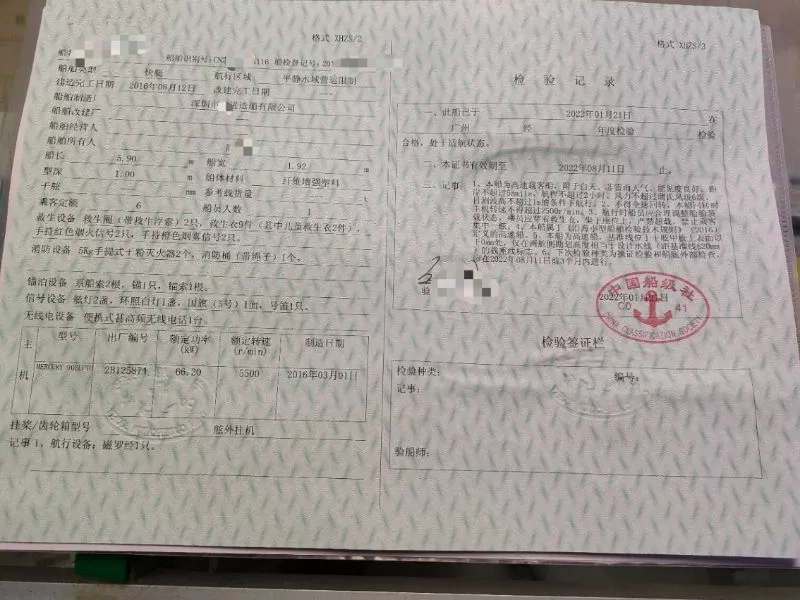 格式 XHZS/2
船舶识别号:CN2 116 船检登记号:201
船舶类型 快艇 航行区域 平静水域营运限制
建造完工日期 2016年08月12日 改建完工日期 —
船舶制造厂 深圳市 进造船有限公司
船舶改建厂 —
船舶经营人
船舶所有人
船长 5.90 m 船宽 1.92 m
型深 1.00 m 船体材料 纤维增强塑料
干舷 — mm 参考载货量 —
乘客定额 6 船员人数 1
救生设备 救生圈(带救生浮索)2只,救生衣9件(其中儿童救生衣2件),
手持红色烟火信号2只,手持橙色烟雾信号2只。
消防设备 5Kg手提式干粉灭火器2个,消防桶(带绳子)1个。
锚泊设备 系船索2根,锚1只,锚索1根。
信号设备 舷灯2盏,环照白灯1盏,国旗(5号)1面,号笛1只。
无线电设备 便携式甚高频无线电话1台。
主机 型号 出厂编号 额定功率(kW) 额定转速(r/min) 制造日期
MERCURY 90ELPTO 2B125871 66.20 5500 2016年03月01日
挂桨/齿轮箱型号 舷外挂机
记事 1、航行设备:磁罗经1只。
格式 XHZS/3
检验记录
一、此船已于 2022年01月21日 在
广州 经 年度检验 检验
合格,处于适航状态。
二、本证书有效期至 2022年08月11日 止。
三、记事:1、本船为高速载客船,限于白天、
机转速不得超过2500r/min。3、航行时船员应合理调整船舶装
载状态,乘员应穿着救生衣,坐于座位上,严禁超载,禁止乘客
集中一舷。4、本船属于《沿海小型船舶检验技术规则》(2016)
定义的高速船。5、本船为高速船,
应在2022年08月11日前3个月内进行。
验
2022年01月21日
中国船级社
CO 41
CHINA CLASSIFICATION SOCIETY
检验签证栏
检验种类: 编号:
记事:
验船师: